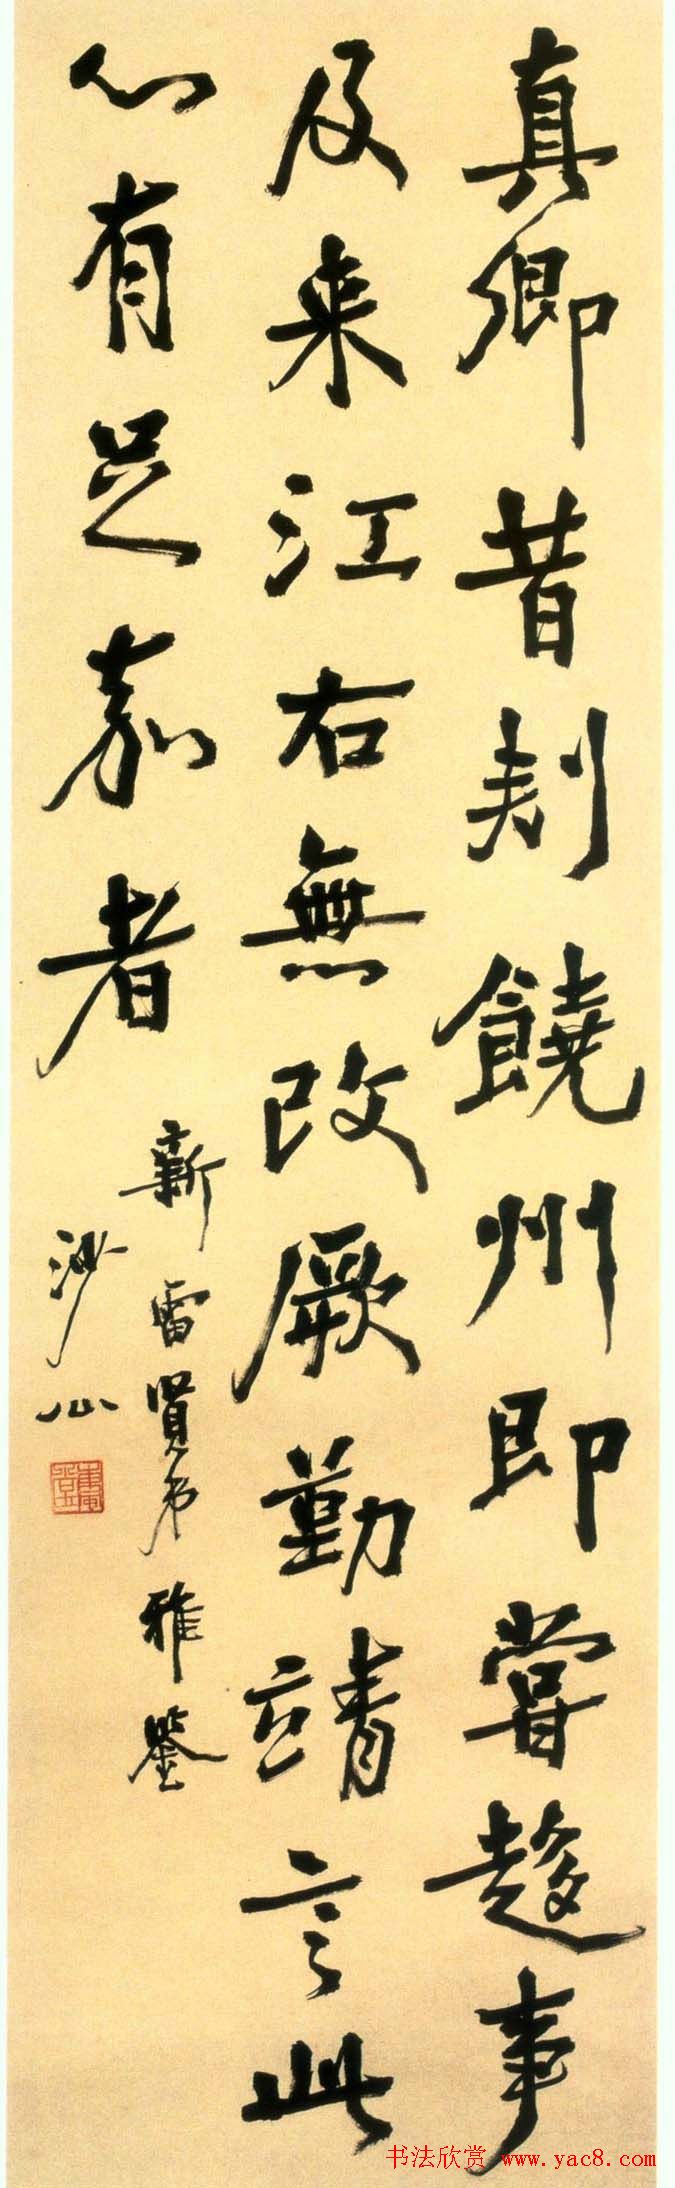 真卿昔刺饒州即嘗趍事
及来江右無改厥勤靖言此
心有足嘉者
新雷賢弟雅鑒
沙
书法欣赏 www.yac8.com